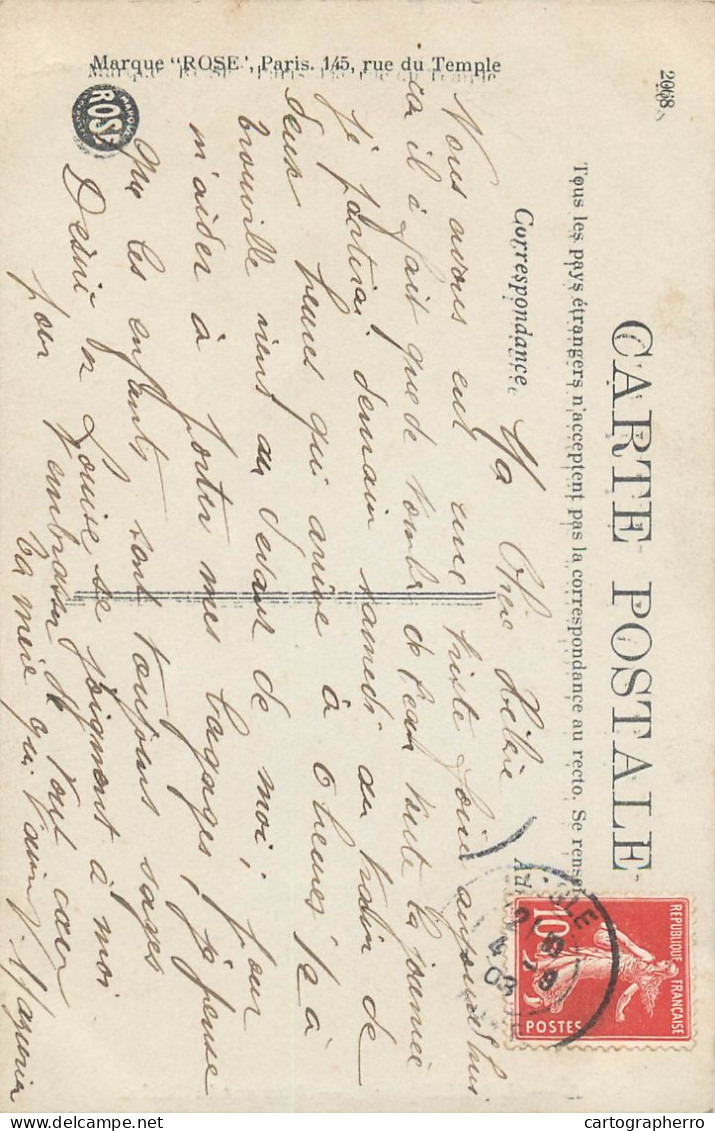 CARTE POSTALE
Tous les pays étrangers n'acceptent pas la correspondance au recto. Se rensei
Correspondance
2068
Marque "ROSE", Paris. 145, rue du Temple
ROSE
RÉPUBLIQUE FRANÇAISE
10
POSTES
Ma Chère
Nous avons eut une triste foire aujourd'hui
ca il à fait que de tombé de l'eau toute la journée
je partirai demain samedi au train de
deux heures qui arrive à 6 heures ½ à
brouville viens au devant de moi, pour
m'aider à porter mes bagages, je pense
que les enfants sont toujours sages
Désiré et Louise se joignent à moi
pour t'embrasser de tout cœur
ta mère qui t'aime
cartographerro - delcampe.net